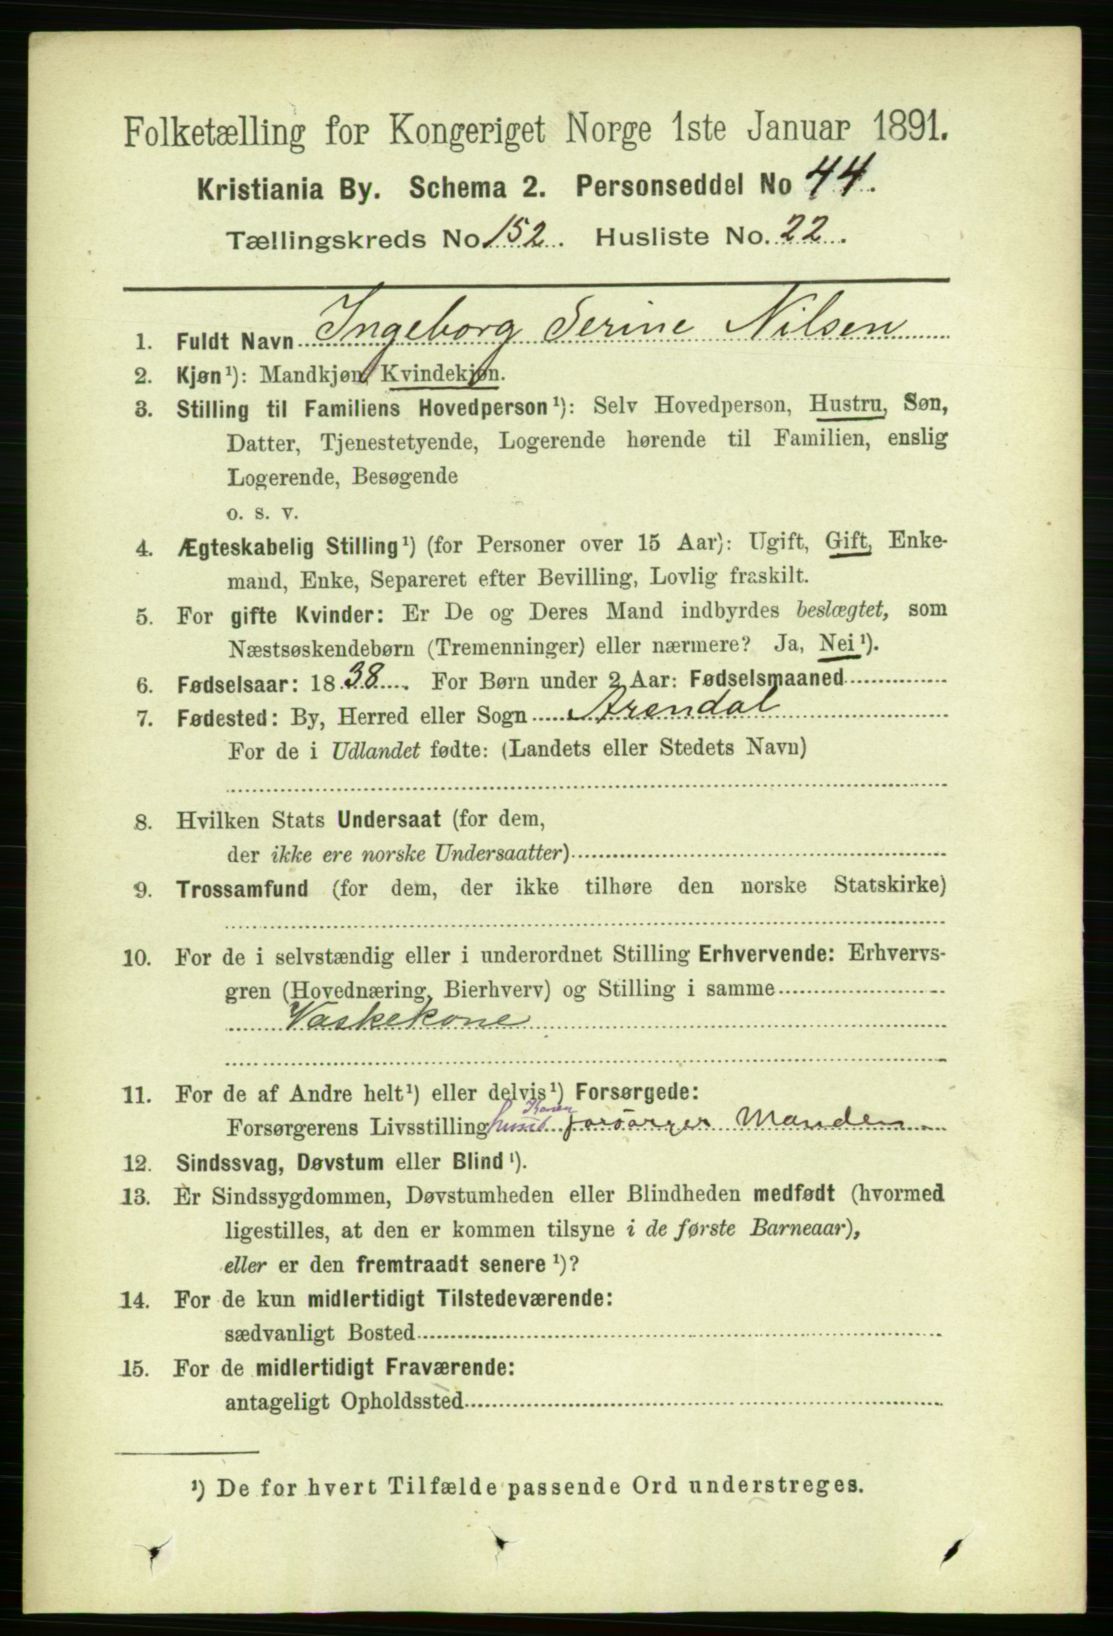 Folketælling for Kongeriget Norge 1ste Januar 1891.
Kristiania By. Schema 2. Personseddel No 44.
Tællingskreds No 152. Husliste No. 22.
1. Fuldt Navn Ingeborg Serine Nilsen
2. Kjøn¹): Mandkjøn, Kvindekjøn.
3. Stilling til Familiens Hovedperson¹): Selv Hovedperson, Hustru, Søn,
Datter, Tjenestetyende, Logerende hørende til Familien, enslig
Logerende, Besøgende
o. s. v.
4. Ægteskabelig Stilling¹) (for Personer over 15 Aar): Ugift, Gift, Enke-
mand, Enke, Separeret efter Bevilling, Lovlig fraskilt.
5. For gifte Kvinder: Er De og Deres Mand indbyrdes beslægtet, som
Næstsøskendebørn (Tremenninger) eller nærmere? Ja, Nei¹).
6. Fødselsaar: 1838. For Børn under 2 Aar: Fødselsmaaned
7. Fødested: By, Herred eller Sogn Arendal
For de i Udlandet fødte: (Landets eller Stedets Navn)
8. Hvilken Stats Undersaat (for dem,
der ikke ere norske Undersaatter)
9. Trossamfund (for dem, der ikke tilhøre den norske Statskirke)
10. For de i selvstændig eller i underordnet Stilling Erhvervende: Erhvervs-
gren (Hovednæring, Bierhverv) og Stilling i samme
Vaskekone
11. For de af Andre helt¹) eller delvis¹) Forsørgede:
Forsørgerens Livsstilling forsörger Manden
12. Sindssvag, Døvstum eller Blind¹).
13. Er Sindssygdommen, Døvstumheden eller Blindheden medfødt (hvormed
ligestilles, at den er kommen tilsyne i de første Barneaar),
eller er den fremtraadt senere¹)?
14. For de kun midlertidigt Tilstedeværende:
sædvanligt Bosted
15. For de midlertidigt Fraværende:
antageligt Opholdssted
¹) De for hvert Tilfælde passende Ord understreges.